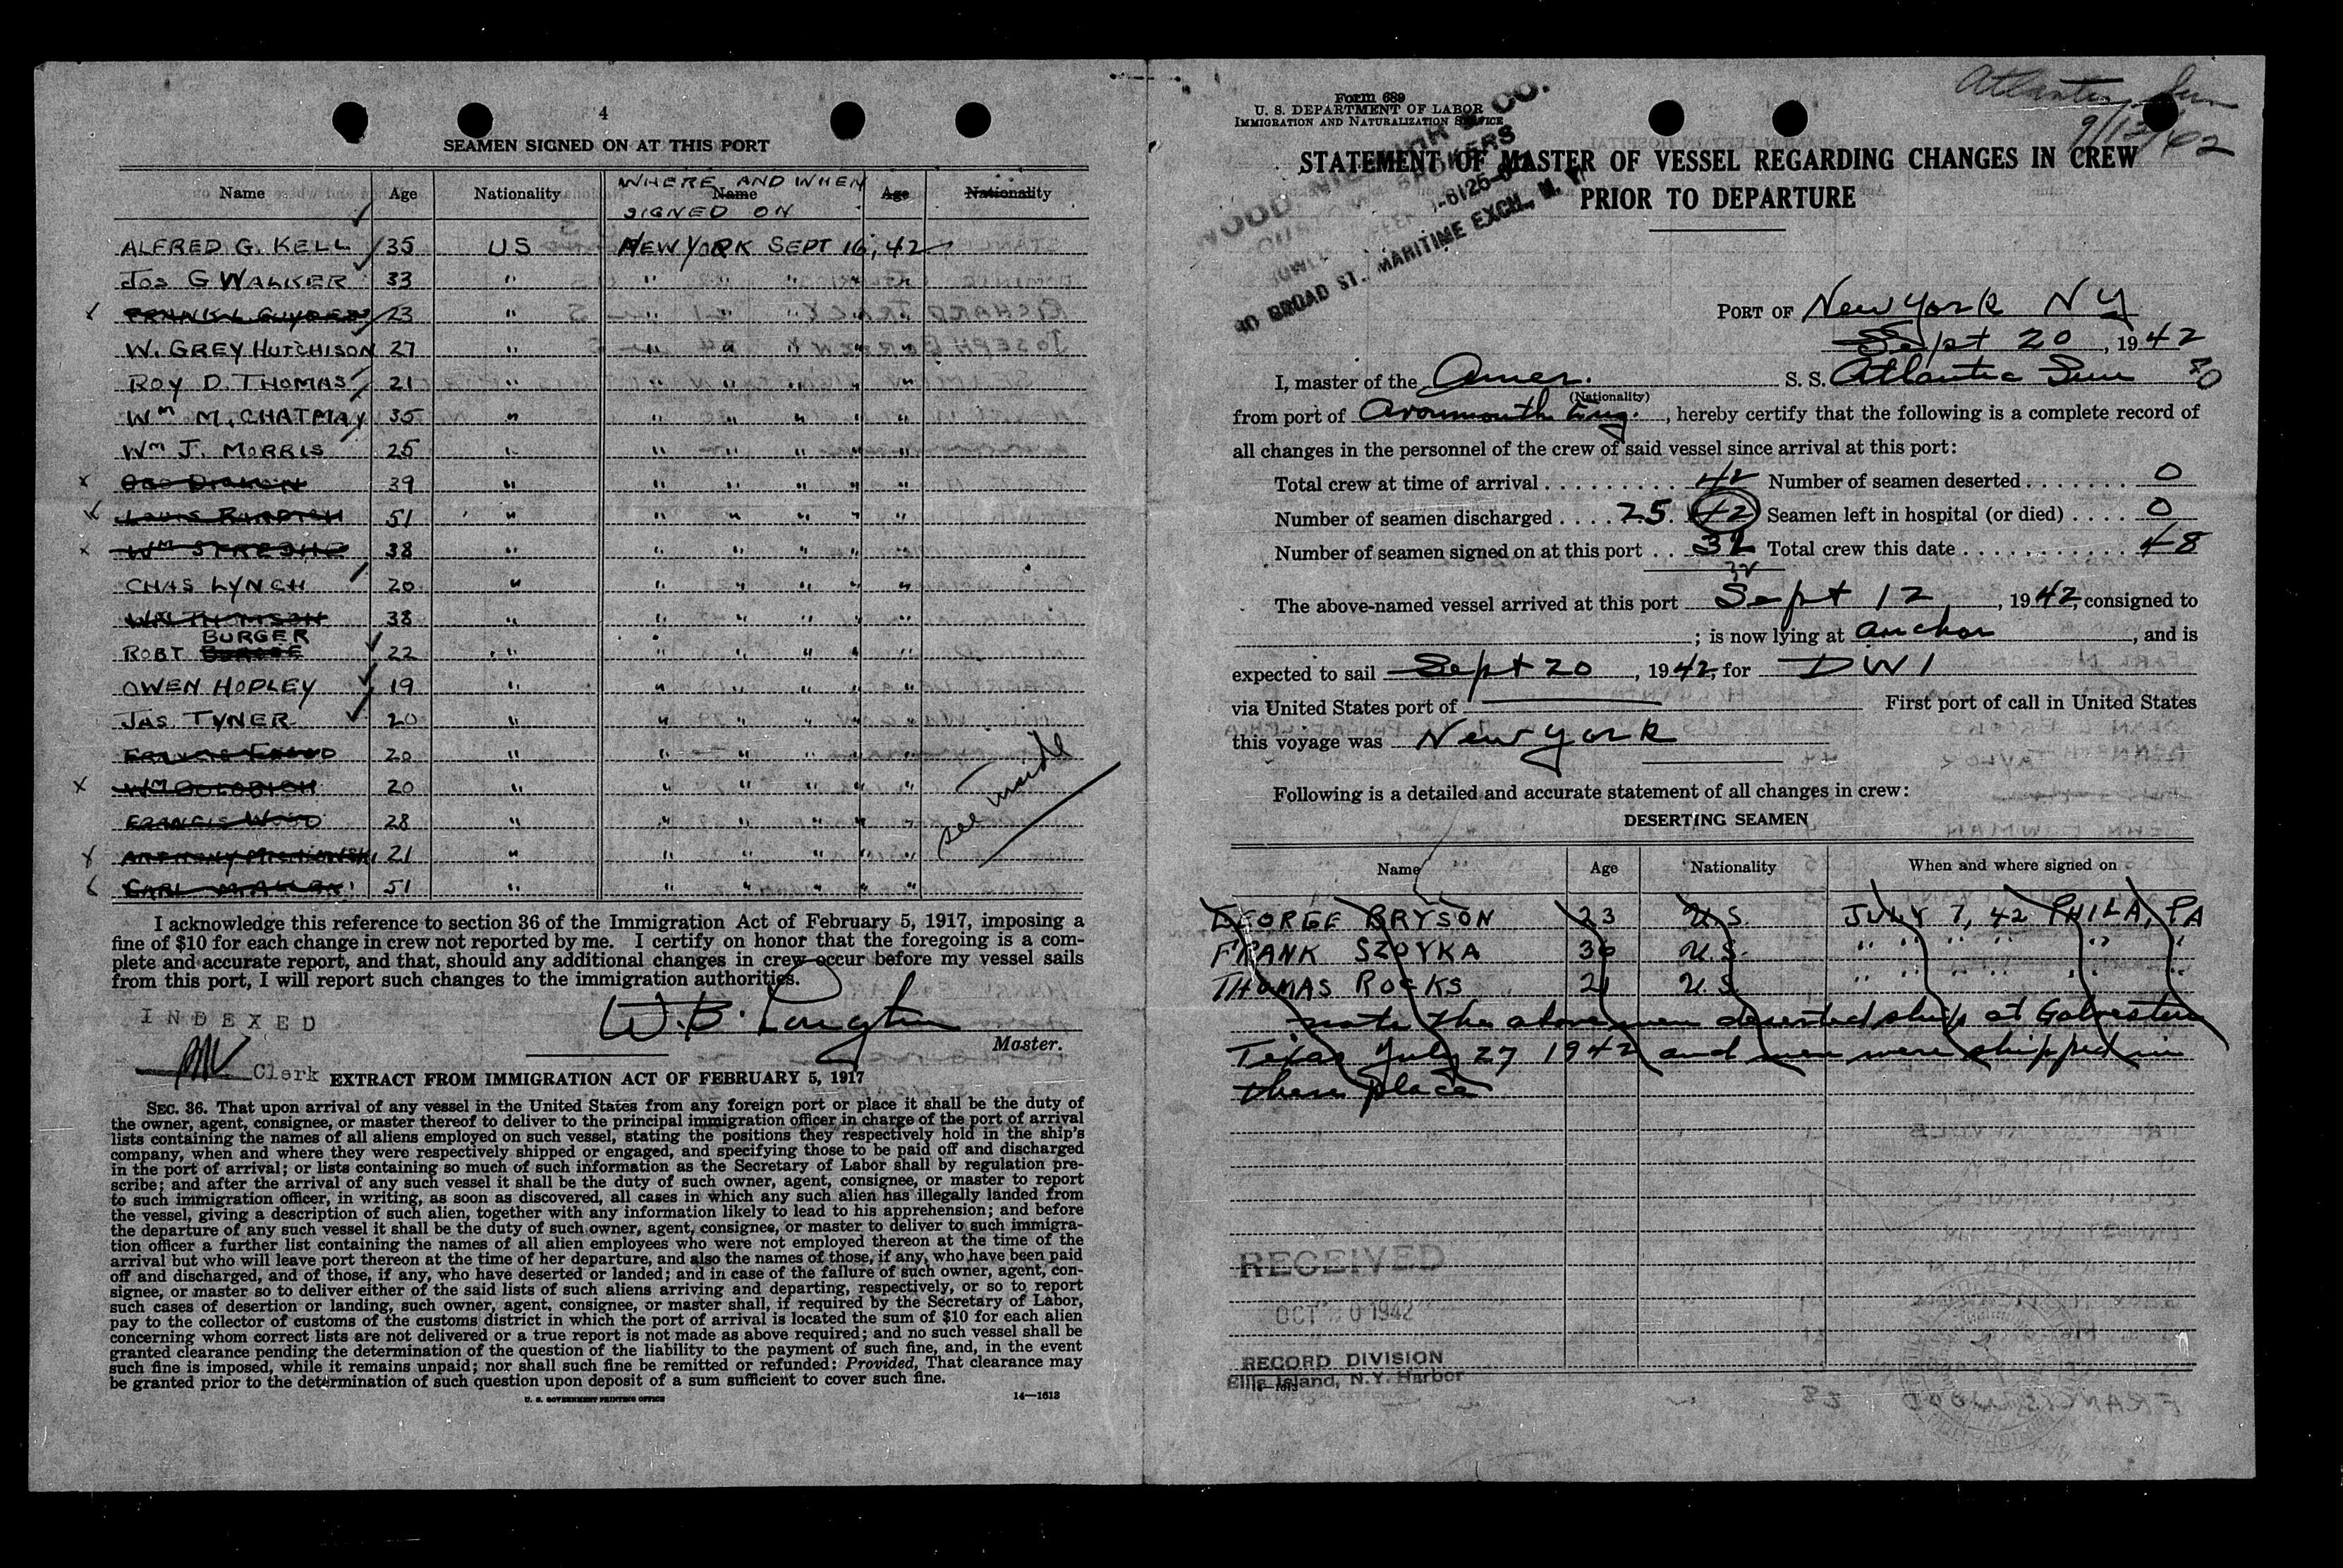 4
SEAMEN SIGNED ON AT THIS PORT
Name Age Nationality Name Age Nationality
WHERE AND WHEN
SIGNED ON
ALFRED G. KELL 35 US NEW YORK SEPT 16, 42
JOS G WALKER 33 " " " " "
23 " " " " " "
W. GREY HUTCHISON 27 " " " " " "
ROY D. THOMAS 21 " " " " " "
WM M. CHATMAY 35 " " " " " "
WM J. MORRIS 25 " " " " " "
39 " " " " " "
51 " " " " " "
38 " " " " " "
CHAS LYNCH 20 " " " " " "
38 " " " " " "
BURGER
ROBT 22 " " " " "
OWEN HOPLEY 19 " " " " " "
JAS TYNER 20 " " " " " "
20 " " " " " "
WM 20 " " " " " "
FRANCIS WOOD 28 " " " " " "
ANTHONY 21 " " " " " "
51 " " " " " "
see inside
I acknowledge this reference to section 36 of the Immigration Act of February 5, 1917, imposing a
fine of $10 for each change in crew not reported by me. I certify on honor that the foregoing is a com-
plete and accurate report, and that, should any additional changes in crew occur before my vessel sails
from this port, I will report such changes to the immigration authorities.
INDEXED
W. B.
Master.
Clerk
EXTRACT FROM IMMIGRATION ACT OF FEBRUARY 5, 1917
SEC. 36. That upon arrival of any vessel in the United States from any foreign port or place it shall be the duty of
the owner, agent, consignee, or master thereof to deliver to the principal immigration officer in charge of the port of arrival
lists containing the names of all aliens employed on such vessel, stating the positions they respectively hold in the ship's
company, when and where they were respectively shipped or engaged, and specifying those to be paid off and discharged
in the port of arrival; or lists containing so much of such information as the Secretary of Labor shall by regulation pre-
scribe; and after the arrival of any such vessel it shall be the duty of such owner, agent, consignee, or master to report
to such immigration officer, in writing, as soon as discovered, all cases in which any such alien has illegally landed from
the vessel, giving a description of such alien, together with any information likely to lead to his apprehension; and before
the departure of any such vessel it shall be the duty of such owner, agent, consignee, or master to deliver to such immigra-
tion officer a further list containing the names of all alien employees who were not employed thereon at the time of the
arrival but who will leave port thereon at the time of her departure, and also the names of those, if any, who have been paid
off and discharged, and of those, if any, who have deserted or landed; and in case of the failure of such owner, agent, con-
signee, or master so to deliver either of the said lists of such aliens arriving and departing, respectively, or so to report
such cases of desertion or landing, such owner, agent, consignee, or master shall, if required by the Secretary of Labor,
pay to the collector of customs of the customs district in which the port of arrival is located the sum of $10 for each alien
concerning whom correct lists are not delivered or a true report is not made as above required; and no such vessel shall be
granted clearance pending the determination of the question of the liability to the payment of such fine, and, in the event
such fine is imposed, while it remains unpaid; nor shall such fine be remitted or refunded: Provided, That clearance may
be granted prior to the determination of such question upon deposit of a sum sufficient to cover such fine.
U. S. GOVERNMENT PRINTING OFFICE 14—1613
Form 689
U. S. DEPARTMENT OF LABOR
IMMIGRATION AND NATURALIZATION SERVICE
Atlantic Sun
9/12/42
& CO.
BROKERS
BROAD ST. MARITIME EXCH., N. Y.
STATEMENT OF MASTER OF VESSEL REGARDING CHANGES IN CREW
PRIOR TO DEPARTURE
PORT OF New York NY
Sept 20, 1942
I, master of the Amer. S. S. Atlantic Sun
(Nationality)
from port of Avonmouth Eng., hereby certify that the following is a complete record of
all changes in the personnel of the crew of said vessel since arrival at this port:
Total crew at time of arrival 42 Number of seamen deserted 0
Number of seamen discharged 25 42 Seamen left in hospital (or died) 0
Number of seamen signed on at this port 32 Total crew this date 48
The above-named vessel arrived at this port Sept 12, 1942, consigned to
; is now lying at anchor, and is
expected to sail Sept 20, 1942, for DWI
via United States port of First port of call in United States
this voyage was New York
Following is a detailed and accurate statement of all changes in crew:
DESERTING SEAMEN
Name Age Nationality When and where signed on
GEORGE BRYSON 23 U.S. JULY 7, 42 PHILA, PA
FRANK SZOYKA 36 U.S. " " " " " "
THOMAS ROCKS 21 U.S. " " " " " "
note the above men deserted ship at Galveston
Texas July 27 1942 and men were shipped in
there place
RECEIVED
OCT 1942
RECORD DIVISION
Ellis Island, N.Y. Harbor
14—1613